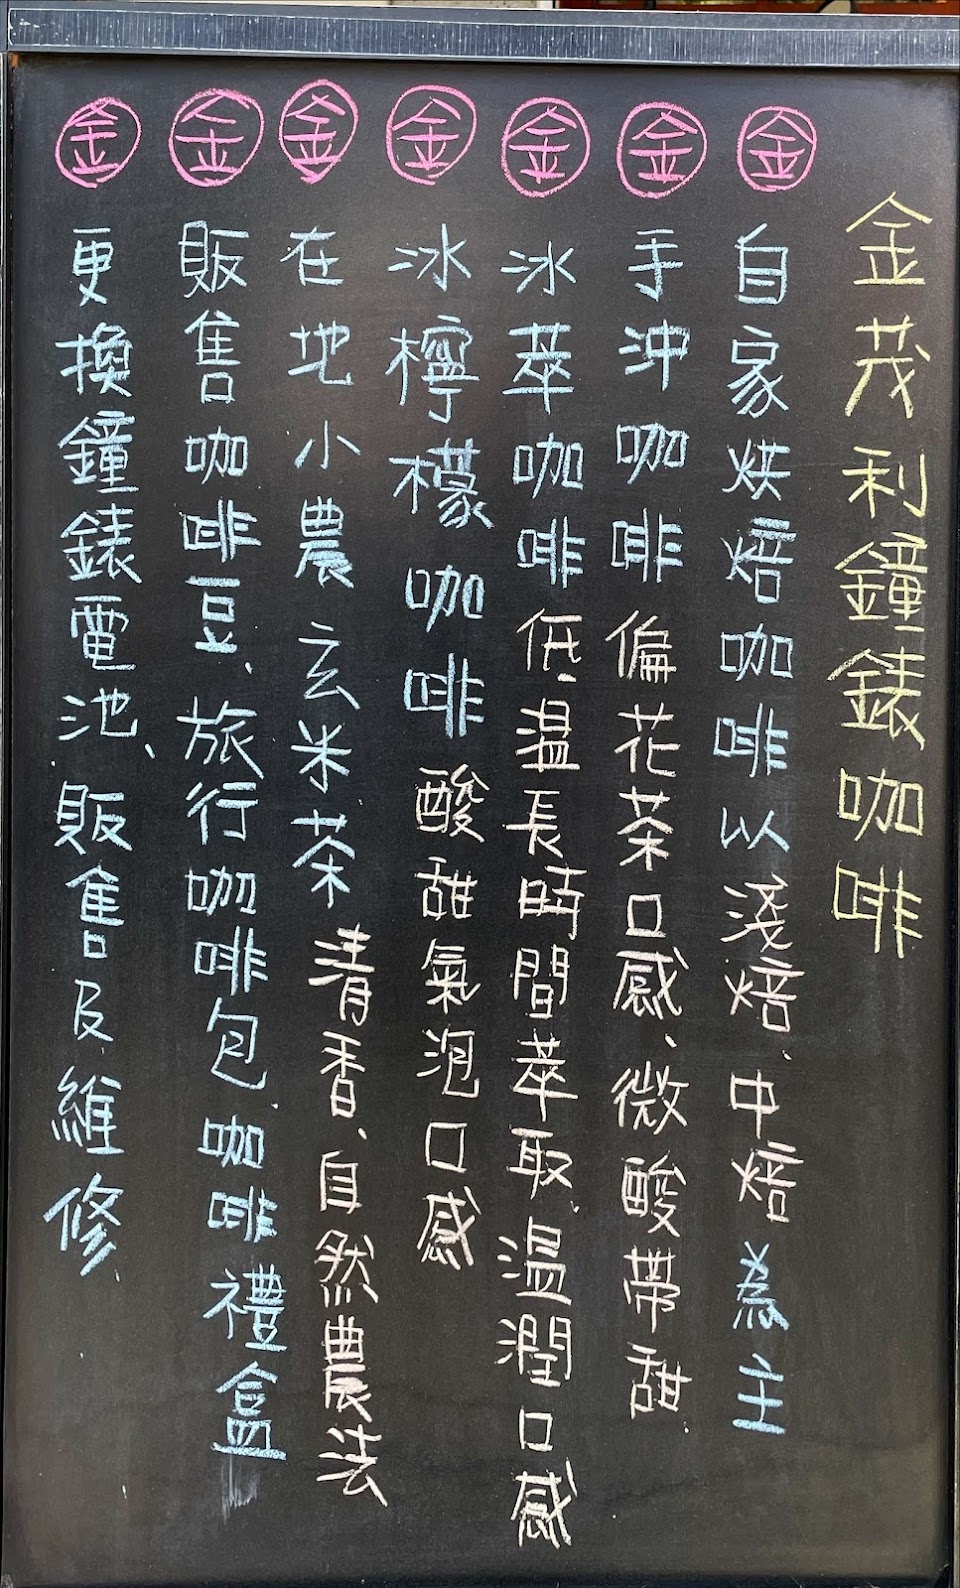 金茂利鐘錶咖啡
㊎自家烘焙咖啡以淺焙、中焙為主
㊎手沖咖啡偏花茶口感、微酸帶甜
㊎冰萃咖啡低溫長時間萃取、溫潤口感
㊎冰檸檬咖啡酸甜氣泡口感
㊎在地小農玄米茶清香、自然農法
㊎販售咖啡豆、旅行咖啡包、咖啡禮盒
㊎更換鐘錶電池、販售及維修